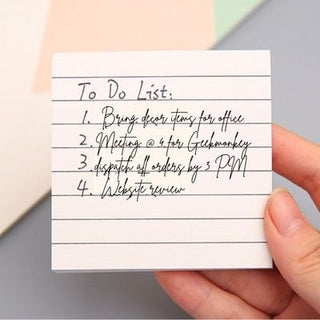 To Do List:
1. Bring decor items for office
2. Meeting @ 4 for Geekmonkey
3. dispatch all orders by 5 PM
4. Website review